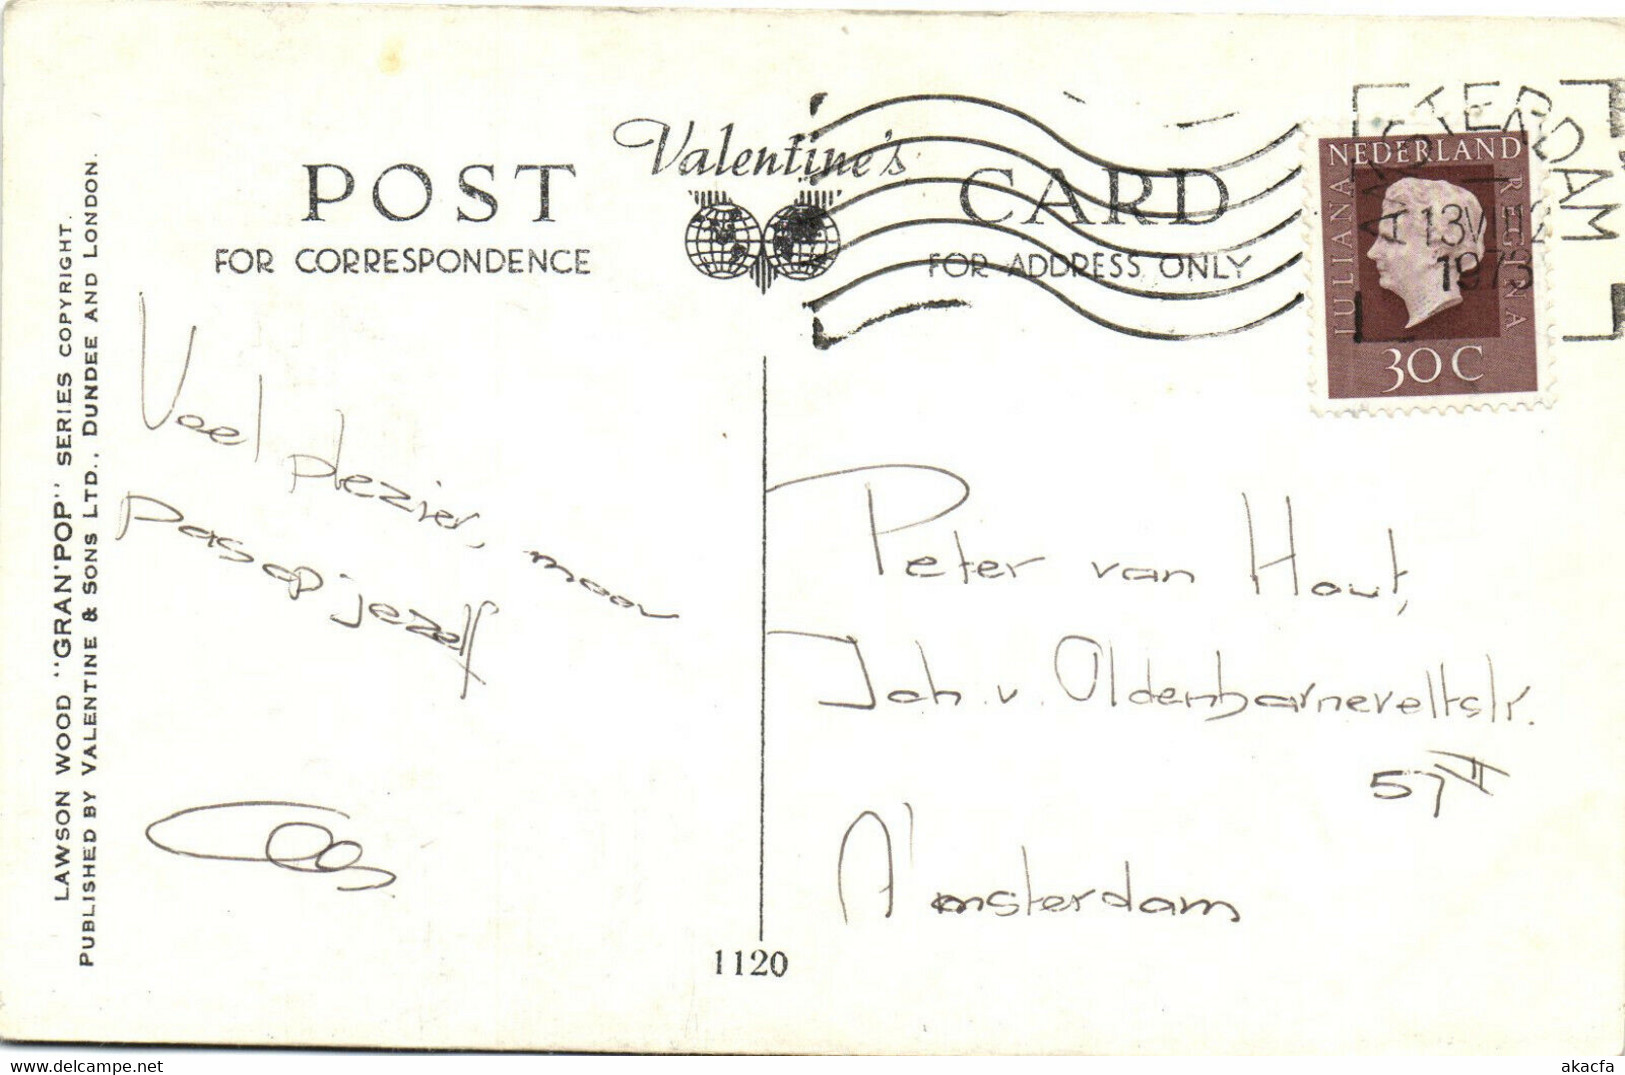 POST
Valentine's
CARD
FOR CORRESPONDENCE
FOR ADDRESS ONLY
AMSTERDAM
1973
NEDERLAND
JULIANA REGINA
30 C
LAWSON WOOD "GRAN'POP" SERIES COPYRIGHT.
PUBLISHED BY VALENTINE & SONS LTD., DUNDEE AND LONDON.
Veel plezier, maar
pas op jezelf
Peter van Hout,
Joh. v. Oldenbarneveltstr.
57 II
Amsterdam
1120
akacfa